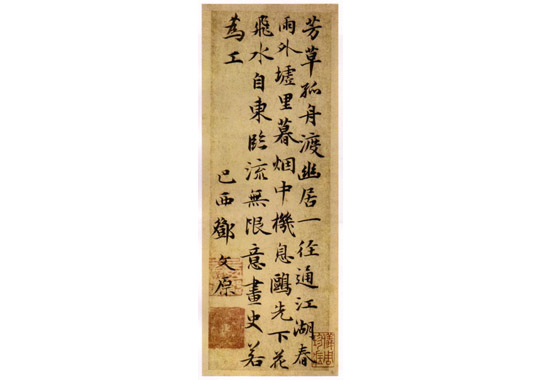 芳草孤舟渡幽居一径通江湖春
雨外墟里暮烟中機息鷗先下花
飛水自東臨流無恨意畫史若
為工
巴西鄧文原